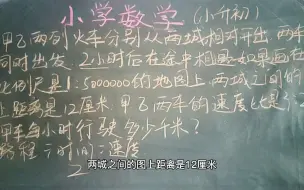 小学数学(小升初)
甲乙两列火车分别从两城相对开出,两车
同时出发,2小时后在途中相遇,如果画在
比例尺是1:5000000的地图上,两城之间的
图上距离是12厘米,甲乙两车的速度比是
甲车每小时行驶多少千米?
路程÷时间=速度
2
两城之间的图上距离是12厘米